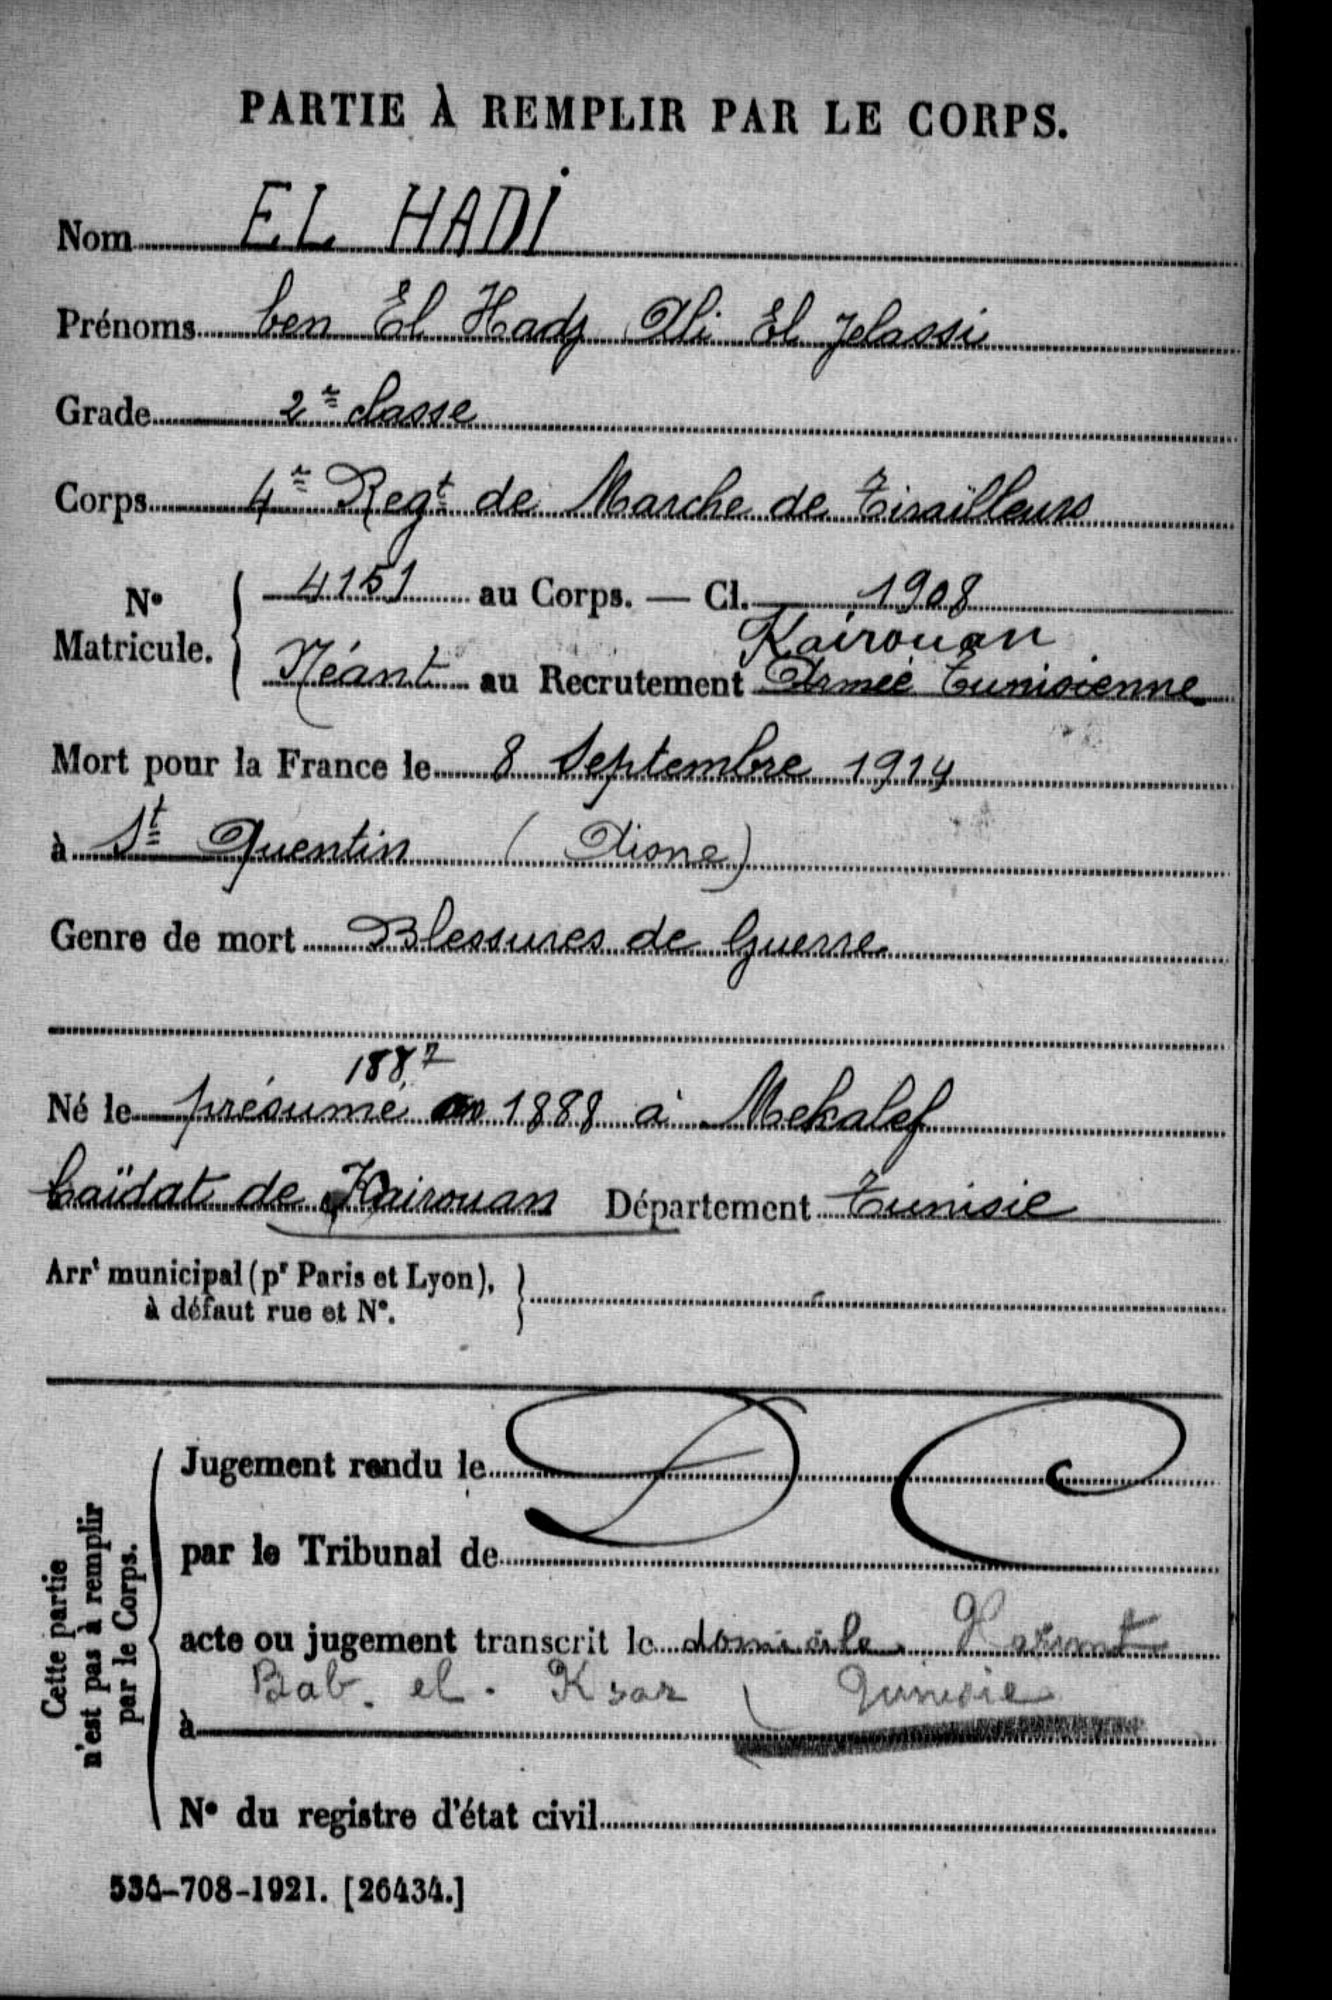 PARTIE À REMPLIR PAR LE CORPS.
Nom EL HADI
Prénoms ben El Hadj Ali El Jelassi
Grade 2e classe
Corps 4e Regt de Marche de Tirailleurs
No Matricule. 4151 au Corps. — Cl. 1908
Kairouan
Néant au Recrutement Armée Tunisienne
Mort pour la France le 8 Septembre 1914
à St Quentin (Aisne)
Genre de mort Blessures de Guerre
1887
Né le présumé en 1888 à Mekalef
Caïdat de Kairouan Département Tunisie
Arrt municipal (pr Paris et Lyon),
à défaut rue et No.
Cette partie
n'est pas à remplir
par le Corps.
Jugement rendu le D C
par le Tribunal de
acte ou jugement transcrit le domicile
Bab. el. Ksar Tunisie
à
No du registre d'état civil
534-708-1921. [26434.]